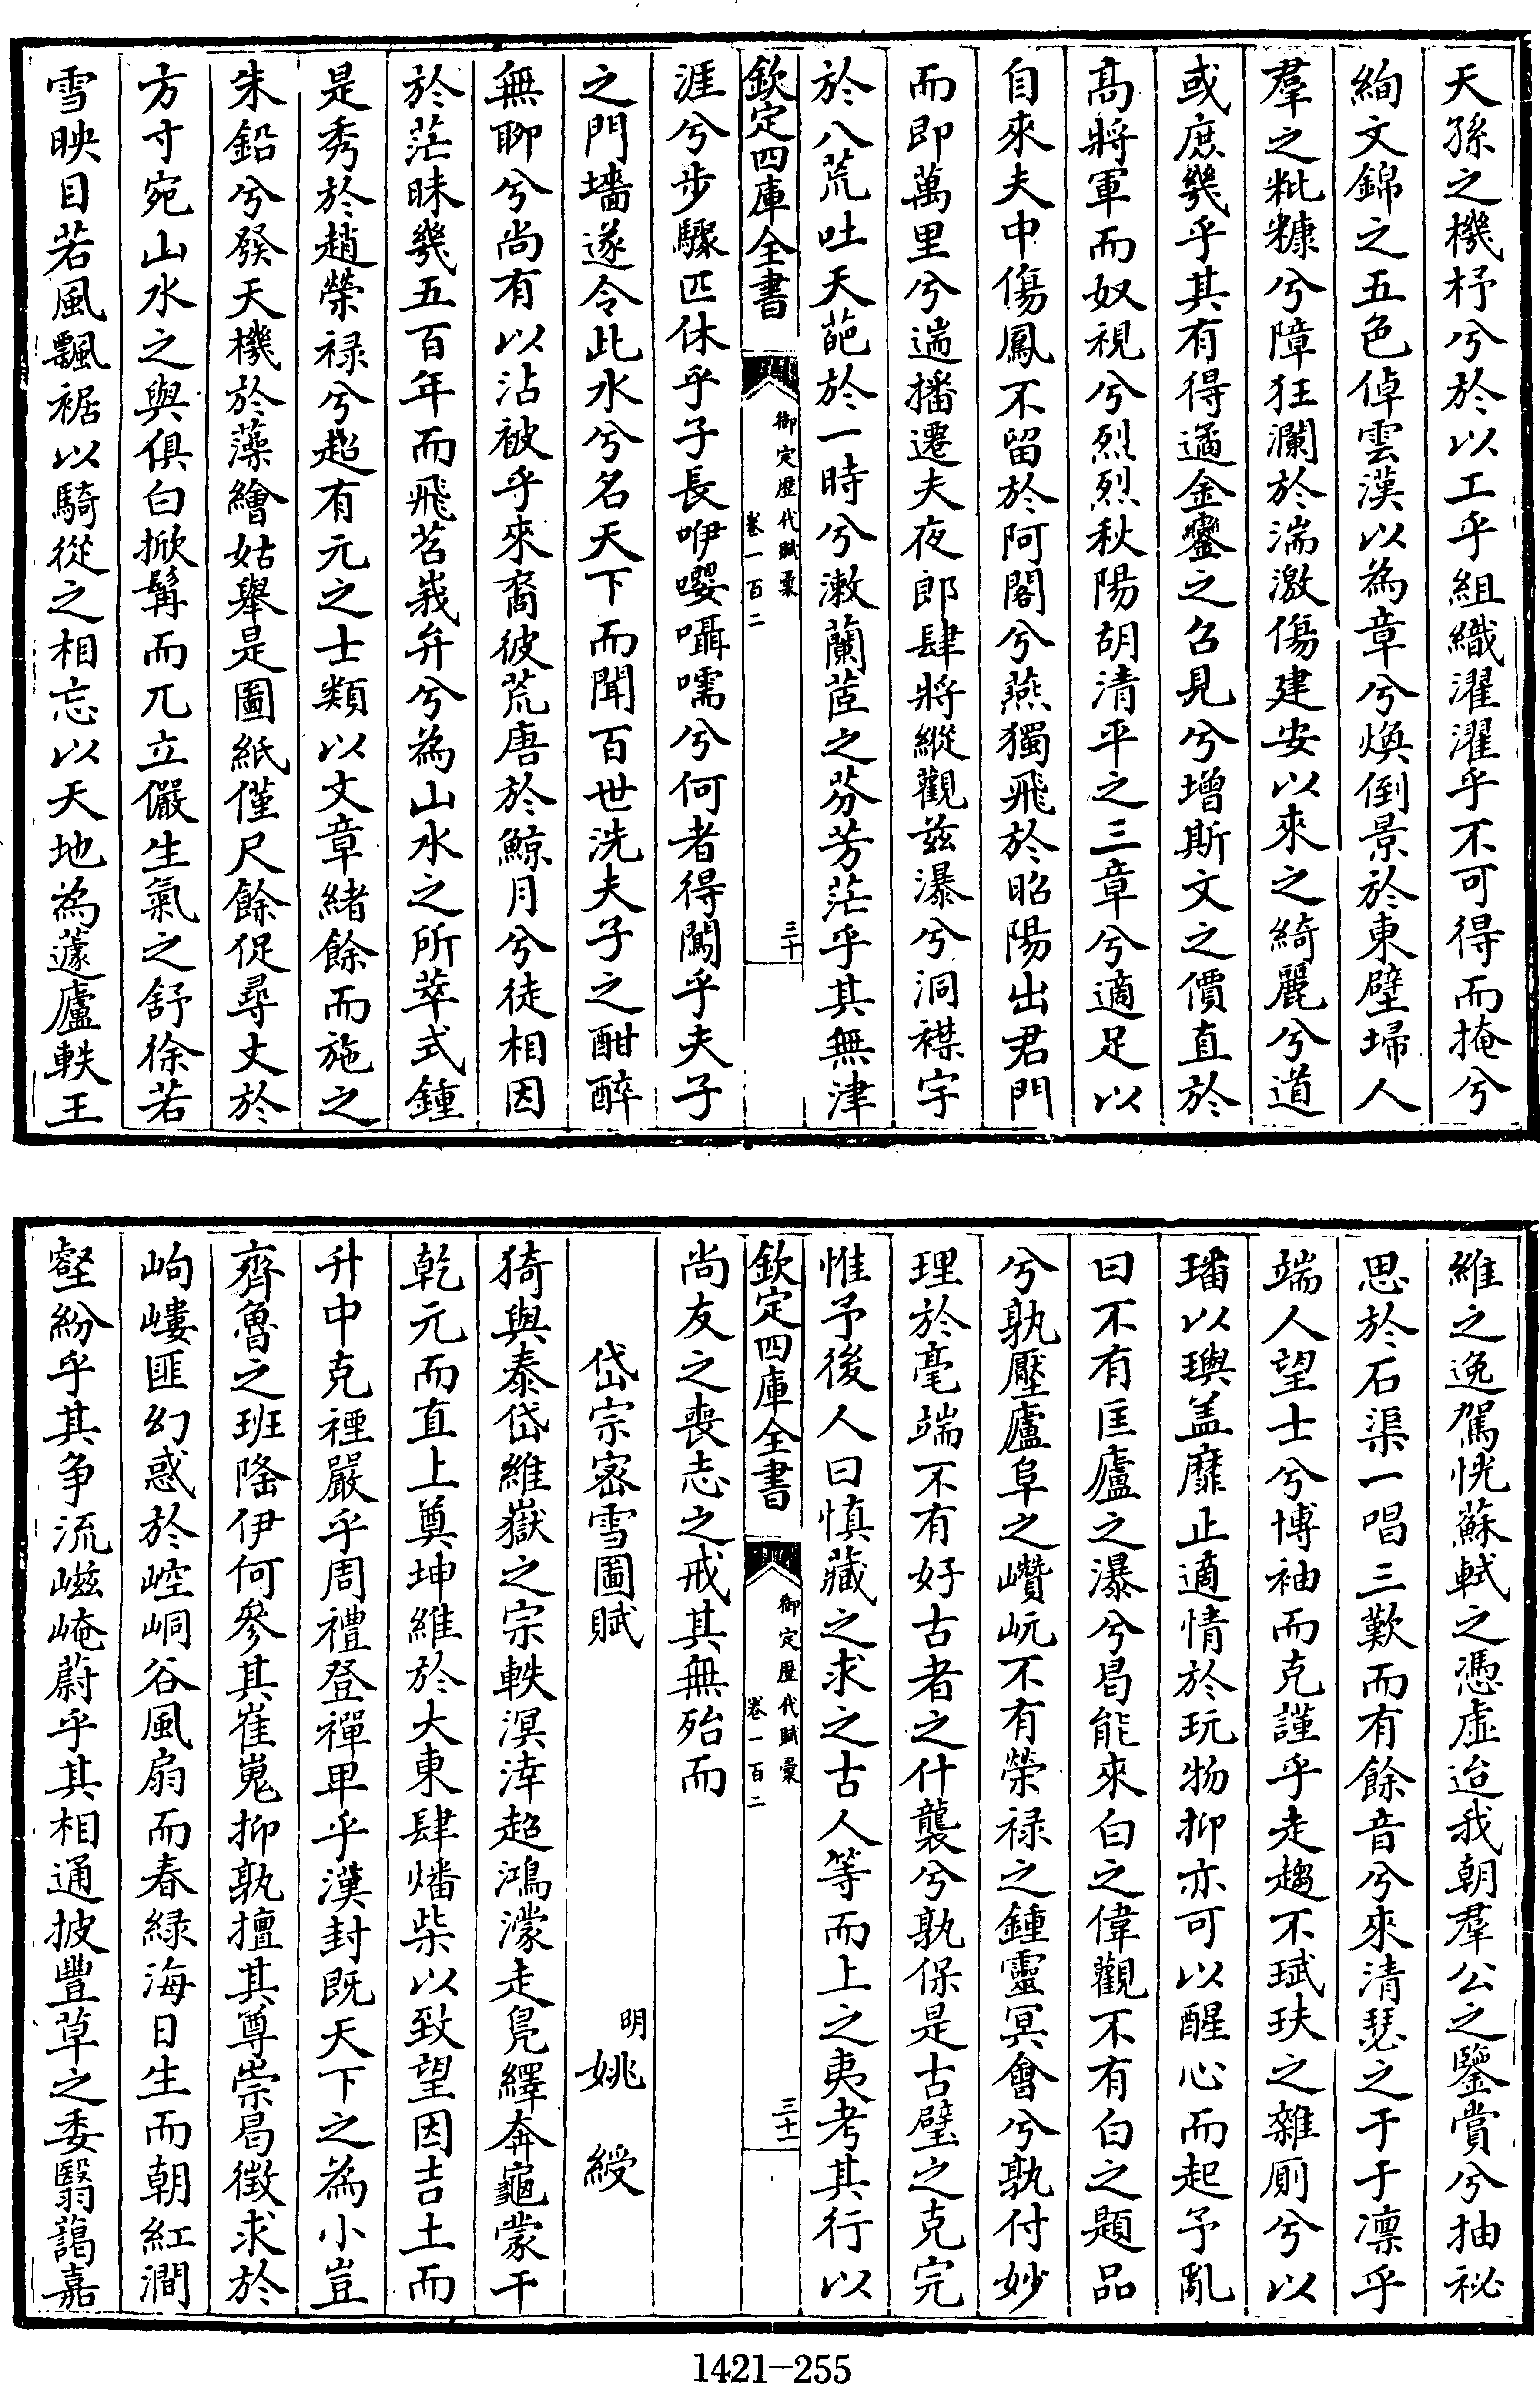 天孫之機杼兮於以工乎組織濯濯乎不可得而掩兮
絢文錦之五色倬雲漢以為章兮煥倒景於東壁埽人
羣之粃糠兮障狂瀾於湍激傷建安以來之綺麗兮道
或庶幾乎其有得遹金鑾之召見兮增斯文之價直於
高將軍而奴視兮烈烈秋陽胡清平之三章兮適足以
自來夫中傷鳳不留於阿閣兮燕獨飛於昭陽出君門
而即萬里兮遄播遷夫夜郎肆將縱觀茲瀑兮洞襟宇
於八荒吐天葩於一時兮漱蘭茝之芬芳茫乎其無津
欽定四庫全書
御定歴代賦彙
卷一百二
三十
涯兮步驟匹休乎子長咿嚶囁嚅兮何者得闖乎夫子
之門墻遂令此水兮名天下而聞百世洗夫子之酣醉
無聊兮尚有以沾被乎來裔彼荒唐於鯨月兮徒相因
於茫昧幾五百年而飛苕峩弁兮為山水之所萃式鍾
是秀於趙榮禄兮超有元之士類以文章緒餘而施之
朱鉛兮發天機於藻繪姑舉是圖紙僅尺餘促尋丈於
方寸宛山水之與俱白掀髯而兀立儼生氣之舒徐若
雪映目若風飄裾以騎從之相忘以天地為蘧廬軼王
維之逸駕恍蘇軾之憑虛迨我朝羣公之鑒賞兮抽祕
思於石渠一唱三歎而有餘音兮來清瑟之于于凛乎
端人望士兮博袖而克謹乎走趨不珷玞之雜厠兮以
璠以璵盖靡止適情於玩物抑亦可以醒心而起予亂
曰不有匡廬之瀑兮曷能來白之偉觀不有白之題品
兮孰壓廬阜之巑岏不有榮禄之鍾靈冥會兮孰付妙
理於毫端不有好古者之什襲兮孰保是古璧之克完
惟予後人曰慎藏之求之古人等而上之夷考其行以
欽定四庫全書
御定歴代賦彙
卷一百二
三十一
尚友之喪志之戒其無殆而
岱宗密雪圖賦
明姚綬
猗與泰岱維嶽之宗軼溟涬超鴻濛走鳧繹奔龜蒙干
乾元而直上奠坤維於大東肆燔柴以致望因吉土而
升中克禋嚴乎周禮登禪卑乎漢封既天下之為小豈
齊魯之班隆伊何參其崔嵬抑孰擅其尊崇曷徴求於
岣嶁匪幻惑於崆峒谷風扇而春緑海日生而朝紅澗
壑紛乎其争流嵫崦蔚乎其相通披豐草之委翳藹嘉
1421-255